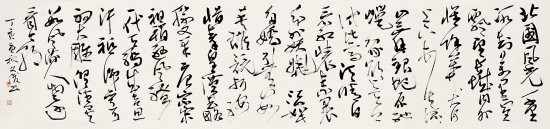 北國風光千
里冰封萬里雪
飄望長城內外
惟餘莽莽大河
上下頓失滔滔
山舞銀蛇原馳
蠟象欲與天公
試比高須晴日
看紅裝素裹
分外妖嬈江山
如此多嬌引無數
英雄競折腰
惜秦皇漢武略
輸文采唐宗宋
祖稍遜風騷
一代天驕成吉思
汗只識彎弓
射大雕俱往矣
數風流人物還
看今朝